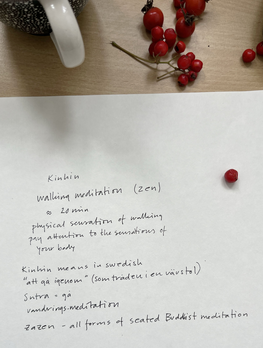 Kinhin
walking meditation (zen)
≈ 20 min
physical sensation of walking
pay attention to the sensations of
your body
Kinhin means in swedish
"att gå igenom" (som tråden i en vävstol)
Sutra = gå
vandrings-meditation
zazen - all forms of seated Buddhist meditation